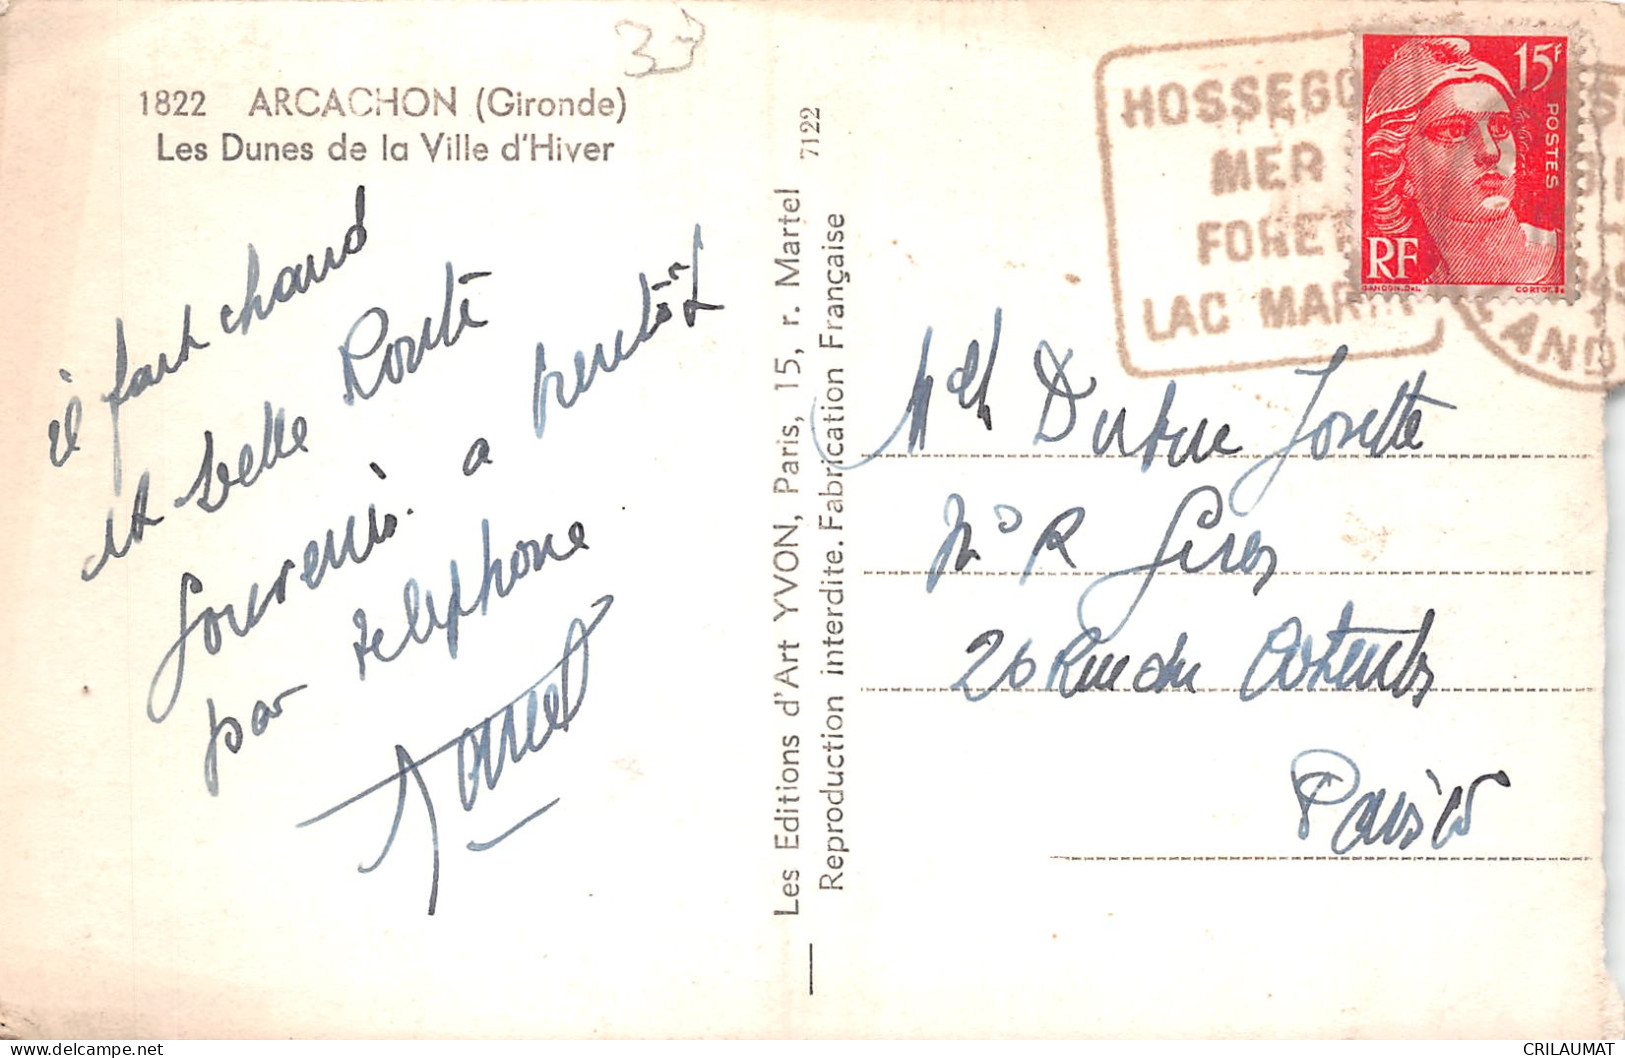 37
1822 ARCACHON (Gironde)
Les Dunes de la Ville d'Hiver
il fait chaud
et belle Route
souvenir. a bientôt
par telephone
Les Editions d'Art YVON, Paris, 15, r. Martel 7122
Reproduction interdite. Fabrication Française
HOSSEGO
MER
FORET
LAC MARIN
LAND
15F
POSTES
RF
GANDON.DEL.
Josette
20 Rue du
Paris
CRILAUMAT